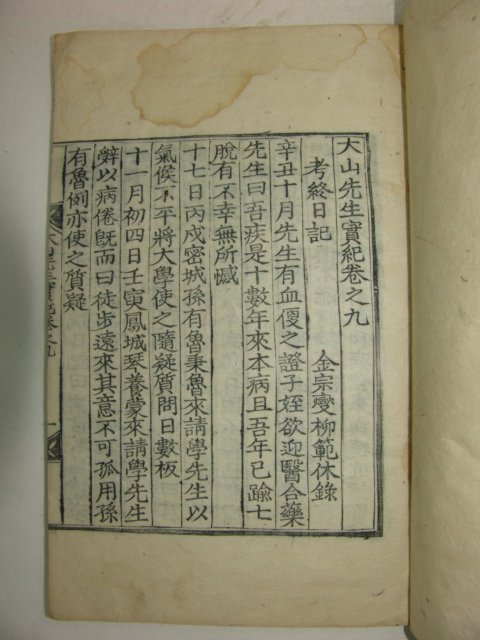 大山先生實紀卷之九
考終日記
金宗燮柳範休錄
辛丑十月先生有血便之證子姪欲迎醫合藥
先生曰吾疾是十數年來本病且吾年已踰七
脫有不幸無所憾
十七日丙戌密城孫有魯秉魯來請學先生以
氣候不平將大學使之隨疑質問日數板
十一月初四日壬寅鳳城琴養蒙來請學先生
辭以病倦旣而曰徒步遠來其意不可孤用孫
有魯例亦使之質疑
大山先生實紀卷之九
一